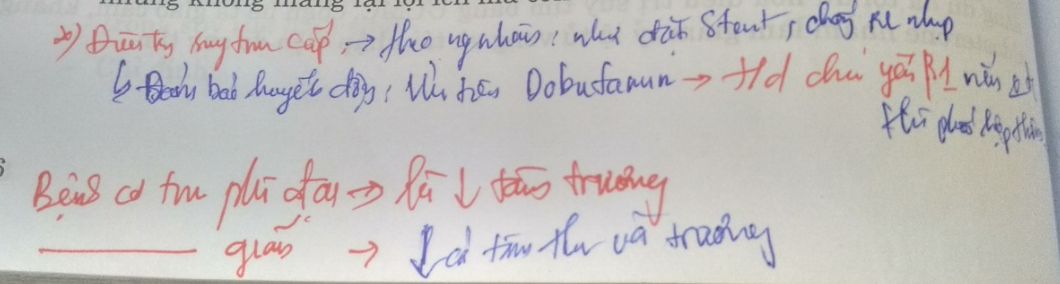 nhưng không mang lại lợi ích
*) Điều trị suy tim cấp → theo ng nhân: như đặt Stent, chống RL nhịp
↳ Đảm bảo huyết động, Ưu tiên Dobutamin → tđ chủ yếu β1 nên
thì phối hợp thêm
Bệnh cơ tim phì đại → là ↓ tâm trương
——— giãn → ↓ cả tâm thu và trương